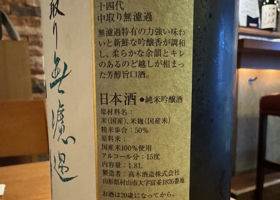 取り無濾過
十四代
中取り無濾過
無濾過特有の力強い味わ
いと新鮮な吟醸香が調和
し、柔らかな余韻とキレ
のあるのど越しが相まっ
た芳醇旨口酒。
日本酒●純米吟醸酒
原材料名：
米(国産)、米麹(国産米)
精米歩合：50%
原料米：
国産米100%使用
アルコール分：15度
内容量：1.8L
製造者：高木酒造株式会社
山形県村山市大字富並1826番地
お酒は20歳になってから